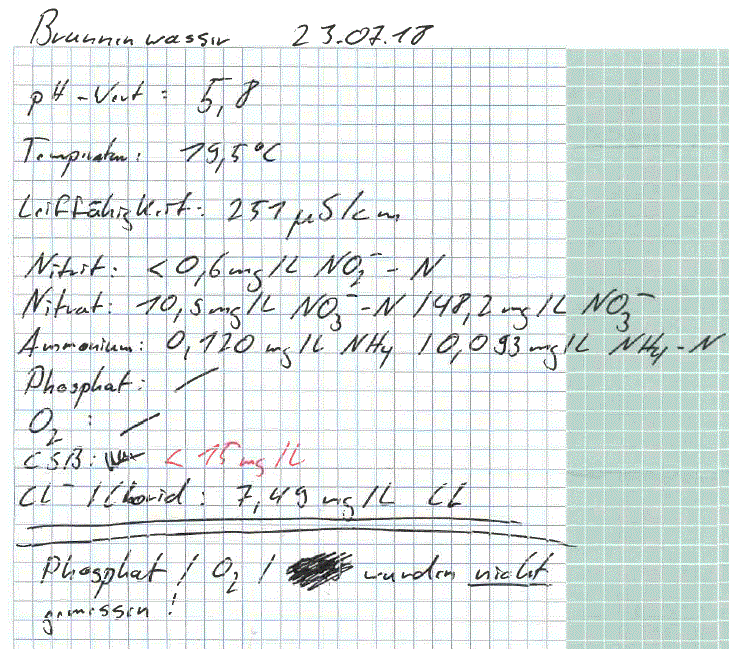 Brunnenwasser 23.07.18
pH-Wert: 5,8
Temperatur: 19,5°C
Leitfähigkeit: 251 µS/cm
Nitrit: < 0,6 mg/L NO₂⁻-N
Nitrat: 10,9 mg/L NO₃⁻-N / 48,2 mg/L NO₃⁻
Ammonium: 0,120 mg/L NH4 / 0,093 mg/L NH4-N
Phosphat: /
O₂ : /
CSB: < 15 mg/L
CL⁻ / Chorid: 7,49 mg/L CL
Phosphat / O₂ / wurden nicht
gemessen!